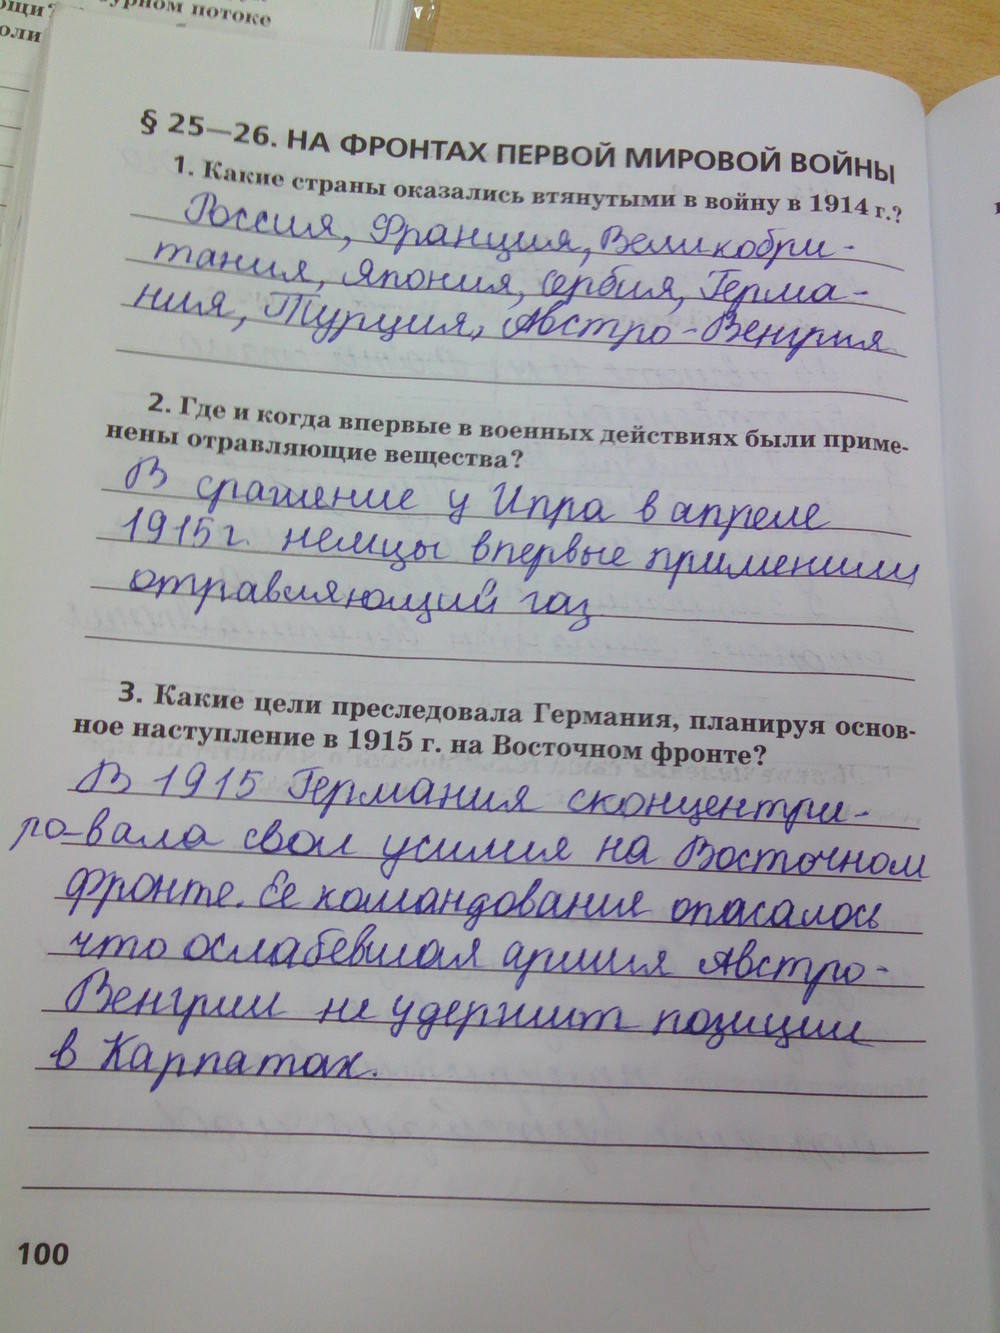 ощи?
урном потоке
оли
§ 25—26. НА ФРОНТАХ ПЕРВОЙ МИРОВОЙ ВОЙНЫ
1. Какие страны оказались втянутыми в войну в 1914 г.?
Россия, Франция, Великобри-
тания, Япония, Сербия, Герма-
ния, Турция, Австро-Венгрия
2. Где и когда впервые в военных действиях были приме-
нены отравляющие вещества?
В сражение у Ипра в апреле
1915 г. немцы впервые применили
отравляющий газ
3. Какие цели преследовала Германия, планируя основ-
ное наступление в 1915 г. на Восточном фронте?
В 1915 Германия сконцентри-
ро-вала свои усилия на Восточном
фронте. Ее командование опасалось
что ослабевшая армия Австро-
Венгрии не удержит позиции
в Карпатах.
100